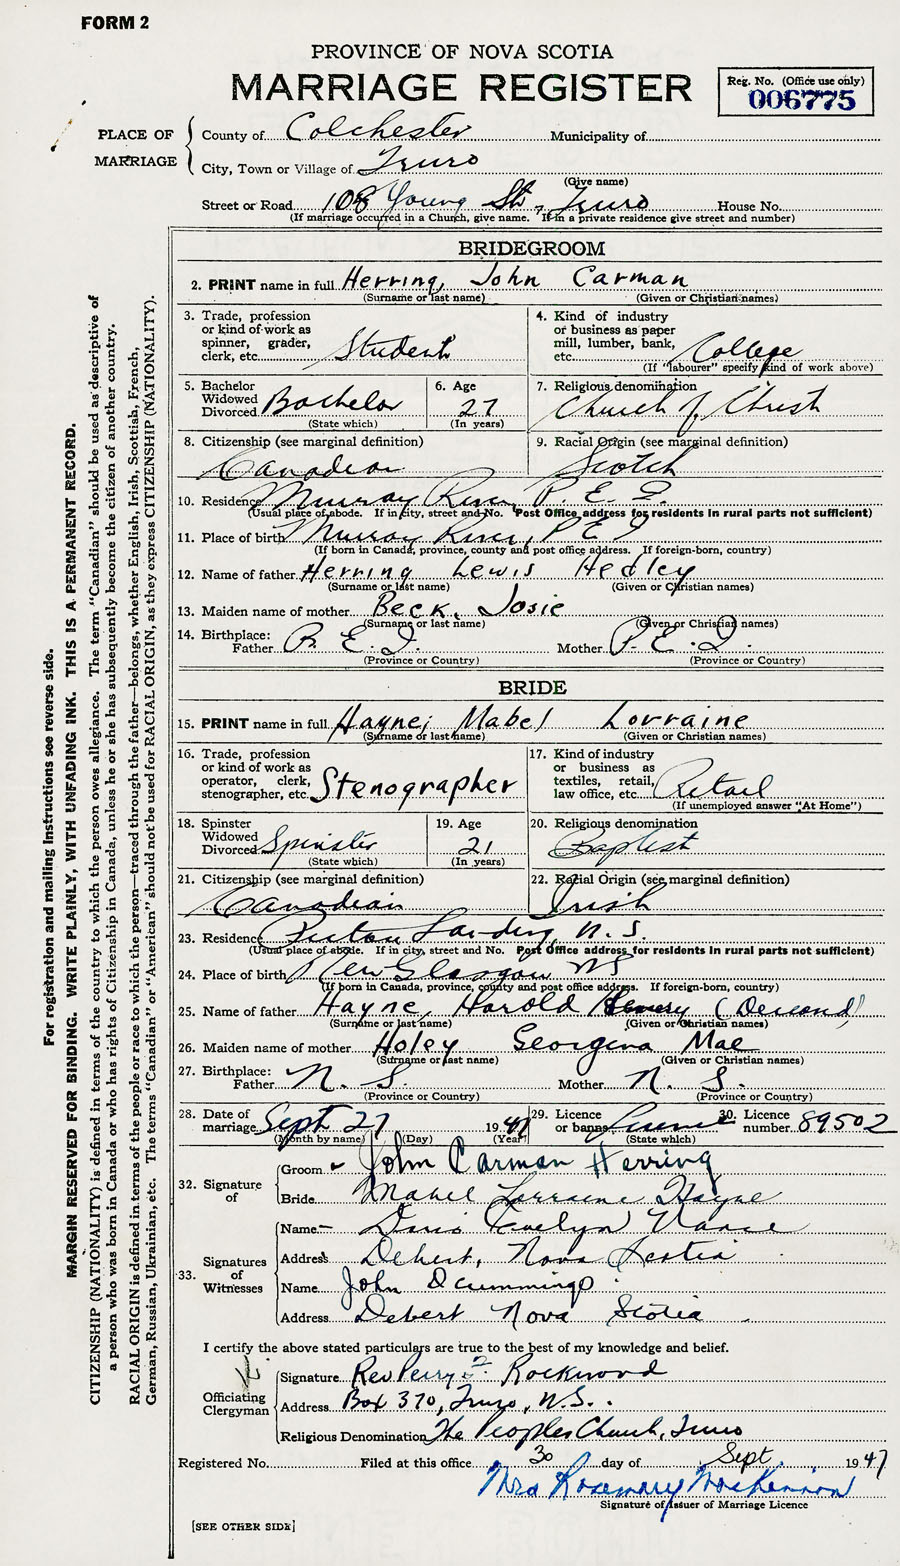 FORM 2
PROVINCE OF NOVA SCOTIA
MARRIAGE REGISTER
Reg. No. (Office use only)
006775
PLACE OF MARRIAGE
County of Colchester Municipality of
City, Town or Village of Truro
(Give name)
Street or Road 108 Young St., Truro House No.
(If marriage occurred in a Church, give name. If in a private residence give street and number)
BRIDEGROOM
2. PRINT name in full Herring, John Carman
(Surname or last name) (Given or Christian names)
3. Trade, profession or kind of work as spinner, grader, clerk, etc. Student
4. Kind of industry or business as paper mill, lumber, bank, etc. College
(If "labourer" specify kind of work above)
5. Bachelor Widowed Divorced Bachelor
(State which)
6. Age 27
(In years)
7. Religious denomination Church of Christ
8. Citizenship (see marginal definition) Canadian
9. Racial Origin (see marginal definition) Scotch
10. Residence Murray River P. E. I.
(Usual place of abode. If in city, street and No. Post Office address for residents in rural parts not sufficient)
11. Place of birth Murray River, P E I
(If born in Canada, province, county and post office address. If foreign-born, country)
12. Name of father Herring Lewis Hedley
(Surname or last name) (Given or Christian names)
13. Maiden name of mother Beck, Josie
(Surname or last name) (Given or Christian names)
14. Birthplace: Father P. E. I. Mother P. E. I.
(Province or Country) (Province or Country)
BRIDE
15. PRINT name in full Hayne, Mabel Lorraine
(Surname or last name) (Given or Christian names)
16. Trade, profession or kind of work as operator, clerk, stenographer, etc. Stenographer
17. Kind of industry or business as textiles, retail, law office, etc. Retail
(If unemployed answer "At Home")
18. Spinster Widowed Divorced Spinster
(State which)
19. Age 21
(In years)
20. Religious denomination Baptist
21. Citizenship (see marginal definition) Canadian
22. Racial Origin (see marginal definition) Irish
23. Residence Pictou Landing, N. S.
(Usual place of abode. If in city, street and No. Post Office address for residents in rural parts not sufficient)
24. Place of birth New Glasgow NS
(If born in Canada, province, county and post office address. If foreign-born, country)
25. Name of father Hayne, Harold
(Surname or last name) (Given or Christian names)
26. Maiden name of mother Holey Georgena Mae
(Surname or last name) (Given or Christian names)
27. Birthplace: Father N. S. Mother N. S.
(Province or Country) (Province or Country)
28. Date of marriage Sept 27 1947
(Month by name) (Day) (Year)
29. Licence or banns License
(State which)
30. Licence number 89502
32. Signature of
Groom John Carman Herring
Bride Mabel Lorraine Hayne
33. Signatures of Witnesses
Name Evelyn
Address Debert, Nova Scotia
Name John D Cummings
Address Debert Nova Scotia
I certify the above stated particulars are true to the best of my knowledge and belief.
Officiating Clergyman
Signature Rev Perry F Rockwood
Address Box 370, Truro, N.S.
Religious Denomination The Peoples Church, Truro
Registered No. Filed at this office 30 day of Sept 1947
Mrs Rosemary MacKinnon
Signature of Issuer of Marriage Licence
[SEE OTHER SIDE]
For registration and mailing instructions see reverse side.
MARGIN RESERVED FOR BINDING. WRITE PLAINLY, WITH UNFADING INK. THIS IS A PERMANENT RECORD.
CITIZENSHIP (NATIONALITY) is defined in terms of the country to which the person owes allegiance. The term "Canadian" should be used as descriptive of
a person who was born in Canada or who has rights of Citizenship in Canada, unless he or she has subsequently become the citizen of another country.
RACIAL ORIGIN is defined in terms of the people or race to which the person—traced through the father—belongs, whether English, Irish, Scottish, French,
German, Russian, Ukrainian, etc. The terms "Canadian" or "American" should not be used for RACIAL ORIGIN, as they express CITIZENSHIP (NATIONALITY).